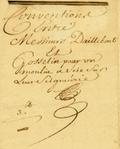 Conventions
Entre
Messieurs Daillebout
Et
Gosselin pour un
moulin a Scie sur
Leur Seigneurie